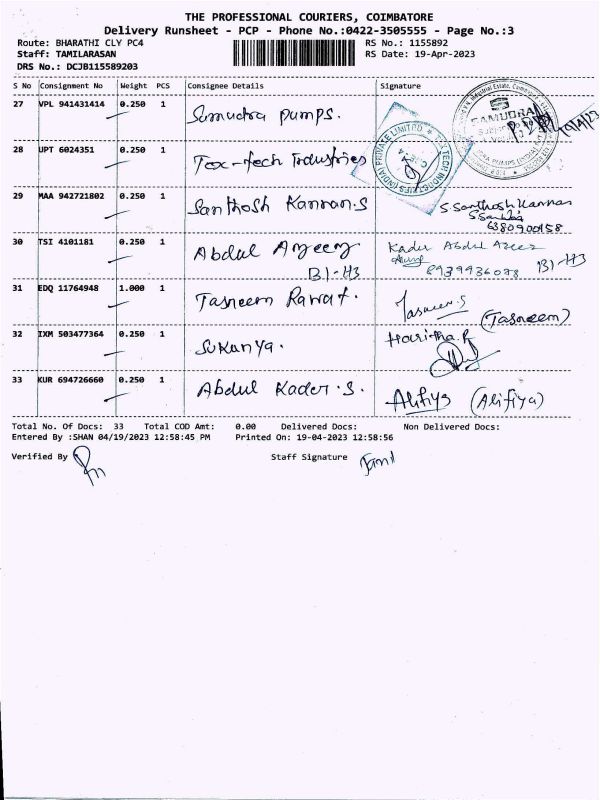 THE PROFESSIONAL COURIERS, COIMBATORE
Delivery Runsheet - PCP - Phone No.:0422-3505555 - Page No.:3
Route: BHARATHI CLY PC4 RS No.: 1155892
Staff: TAMILARASAN RS Date: 19-Apr-2023
DRS No.: DCJB115589203
S No Consignment No Weight PCS Consignee Details Signature
27 VPL 941431414 0.250 1 Samudra Pumps. SAMUDRA
28 UPT 6024351 0.250 1 Tex-tech Industries
29 MAA 942721802 0.250 1 Santhosh Kannan.S S.Santhosh Kannan
6380900158
30 TSI 4101181 0.250 1 Abdul Azeez Kader Abdul Azeez
B1-H3 8939936078 B1-H3
31 EDQ 11764948 1.000 1 Tasneem Rawat. Tasneem.S (Tasneem)
32 IXM 503477364 0.250 1 Sukanya. Haritha.R
33 KUR 694726660 0.250 1 Abdul Kader.S. Alifiya (Alifiya)
Total No. Of Docs: 33 Total COD Amt: 0.00 Delivered Docs: Non Delivered Docs:
Entered By :SHAN 04/19/2023 12:58:45 PM Printed On: 19-04-2023 12:58:56
Verified By Staff Signature Tamil